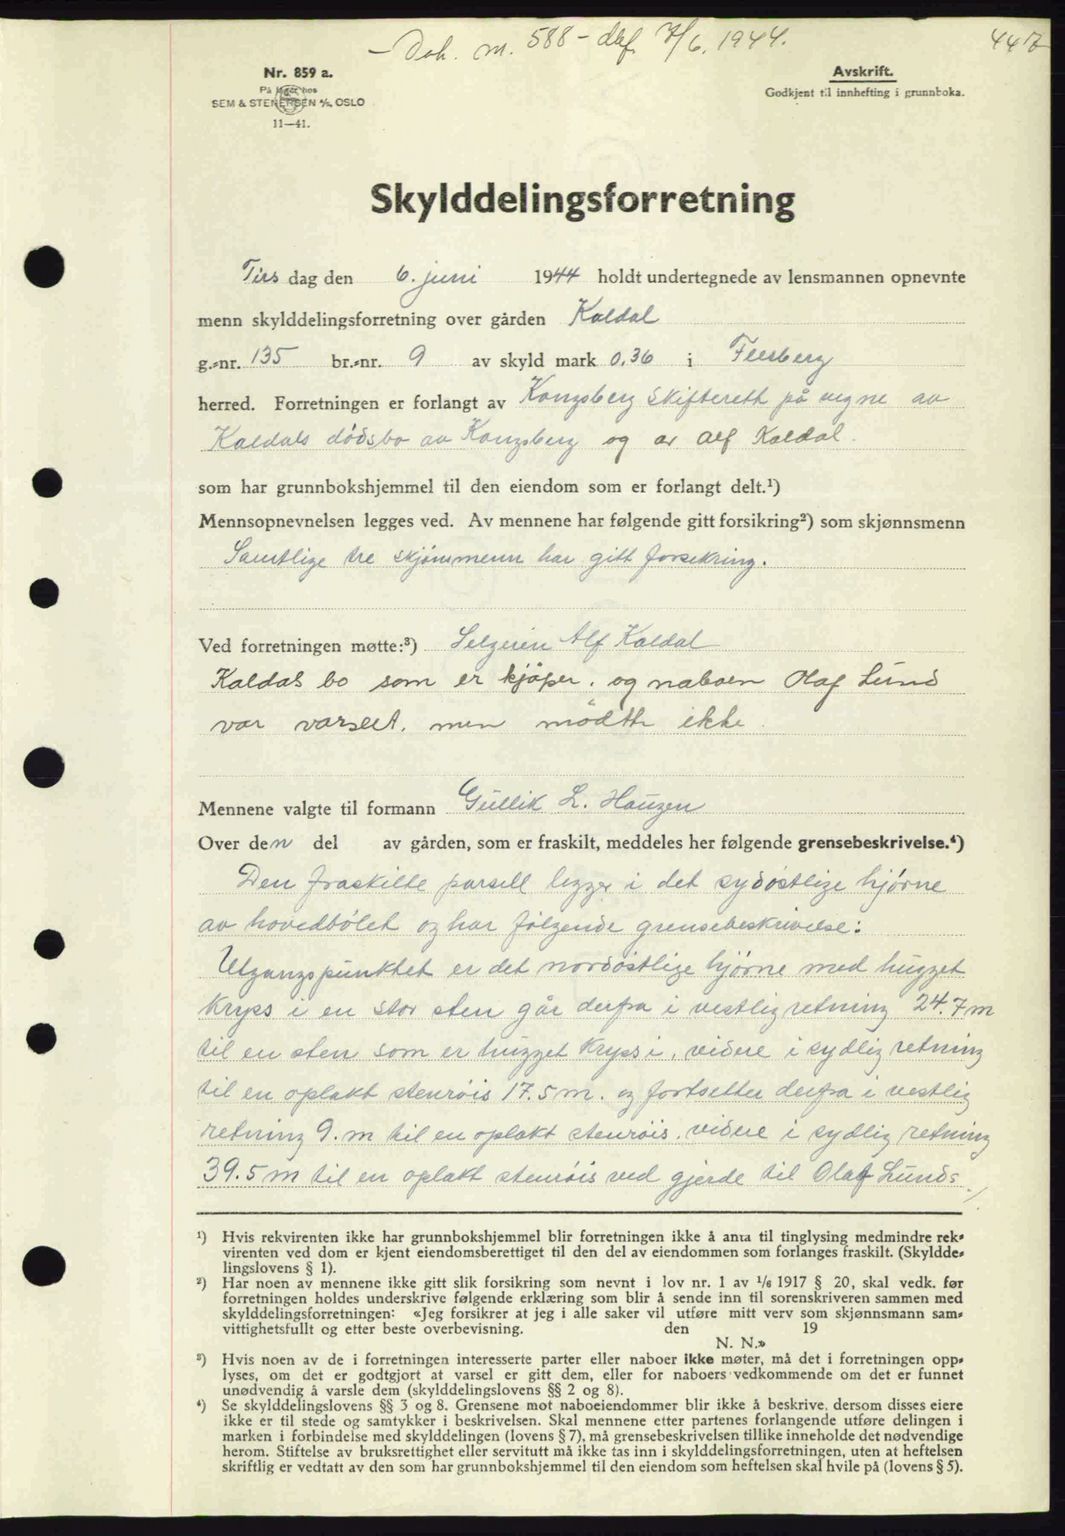 - Dok. nr. 588 - dbf. 7/6. 1944.
447
Nr. 859 a.
På lager hos
SEM & STENERSEN A/S, OSLO
11—41.
Avskrift.
Godkjent til innhefting i grunnboka.
Skylddelingsforretning
Tirs dag den 6. juni 1944 holdt undertegnede av lensmannen opnevnte
menn skylddelingsforretning over gården Kaldal
g.-nr. 135 br.-nr. 9 av skyld mark 0,36 i Flesberg
herred. Forretningen er forlangt av Kongsberg Skifterett på vegne av
Kaldals dödsbo av Kongsberg og av Alf Kaldal.
som har grunnbokshjemmel til den eiendom som er forlangt delt.¹)
Mennsopnevnelsen legges ved. Av mennene har følgende gitt forsikring²) som skjønnsmenn
Samtlige tre skjönnmenn har gitt forsikring.
Ved forretningen møtte:³) Selgeren Alf Kaldal
Kaldals bo som er kjöper. og naboen Olaf Lund
var varslet. men mödtte ikke.
Mennene valgte til formann Gullik L. Haugen
Over den del av gården, som er fraskilt, meddeles her følgende grensebeskrivelse.⁴)
Den fraskilte parsell ligger i det sydöstlige hjörne
av hovedbölet og har fölgende grensebeskrivelse:
Utgangspunktet er det nordöstlige hjörne med hugget
Kryss i en stor sten går derfra i vestlig retning 24.7 m
til en sten som er hugget Kryss i, videre i sydlig retning
til en oplakt stenröis 17.5 m. og fortsetter derfra i vestlig
retning 9. m til en oplakt stenröis. videre i sydlig retning
39.5 m til en oplakt stenröis ved gjerde til Olaf Lunds ./
¹) Hvis rekvirenten ikke har grunnbokshjemmel blir forretningen ikke å anta til tinglysing medmindre rek-
virenten ved dom er kjent eiendomsberettiget til den del av eiendommen som forlanges fraskilt. (Skyldde-
lingslovens § 1).
²) Har noen av mennene ikke gitt slik forsikring som nevnt i lov nr. 1 av 1/6 1917 § 20, skal vedk. før
forretningen holdes underskrive følgende erklæring som blir å sende inn til sorenskriveren sammen med
skylddelingsforretningen: «Jeg forsikrer at jeg i alle saker vil utføre mitt verv som skjønnsmann sam-
vittighetsfullt og etter beste overbevisning. den 19
N. N.»
³) Hvis noen av de i forretningen interesserte parter eller naboer ikke møter, må det i forretningen opp-
lyses, om det er godtgjort at varsel er gitt dem, eller for naboers vedkommende om det er funnet
unødvendig å varsle dem (skylddelingslovens §§ 2 og 8).
⁴) Se skylddelingslovens §§ 3 og 8. Grensene mot naboeiendommer blir ikke å beskrive, dersom disses eiere
ikke er til stede og samtykker i beskrivelsen. Skal mennene etter partenes forlangende utføre delingen i
marken i forbindelse med skylddelingen (lovens § 7), må grensebeskrivelsen tillike inneholde det nødvendige
herom. Stiftelse av bruksrettighet eller servitutt må ikke tas inn i skylddelingsforretningen, uten at heftelsen
skriftlig er vedtatt av den som har grunnbokshjemmel til den eiendom som heftelsen skal hvile på (lovens § 5).